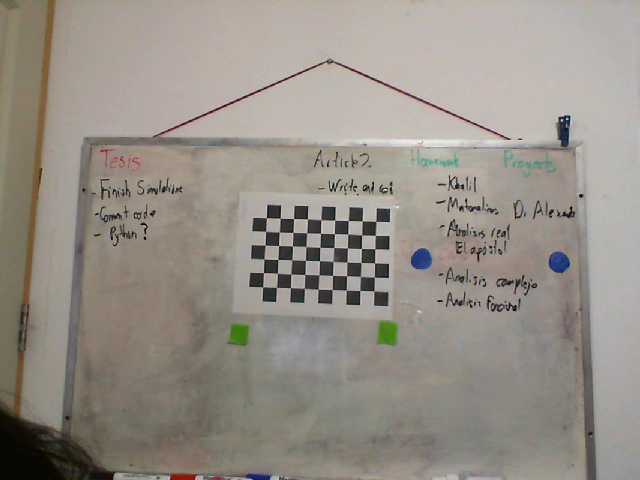 Tesis
- Finish Simulations
- Comment code
- Python?
Article 2.
- Write and
Homework
- Khalil
- Matematicas
- Analisis real
El apóstol
- Analisis complejo
- Analisis Funcional
Proyects
Dr Alexander